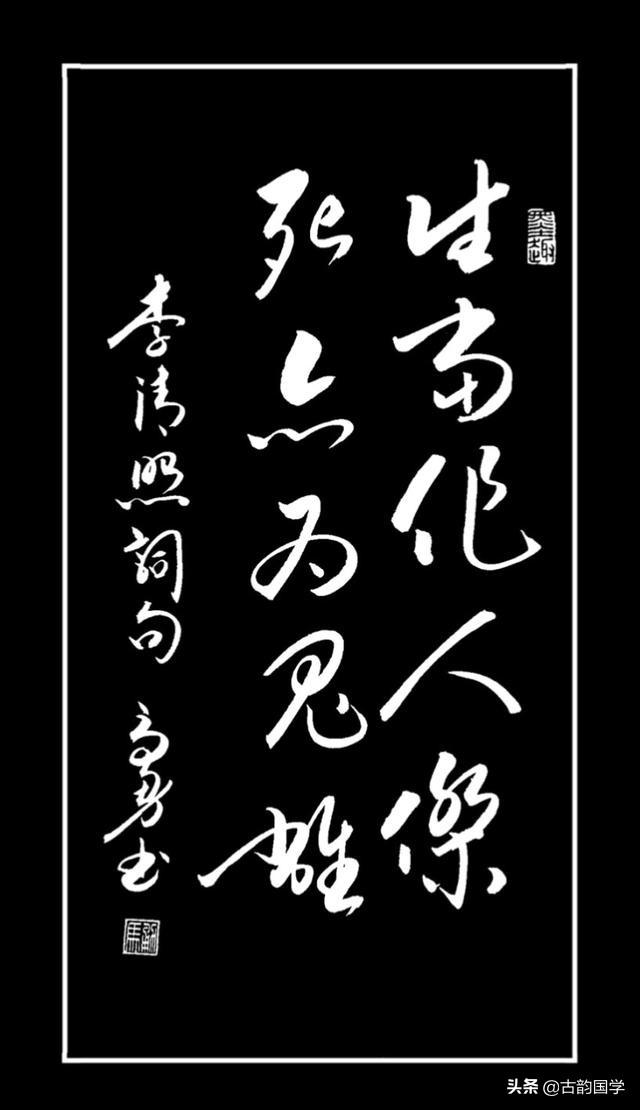 生當作人傑
死亦为鬼雄
李清照詞句 高 书
头条 @古韵国学